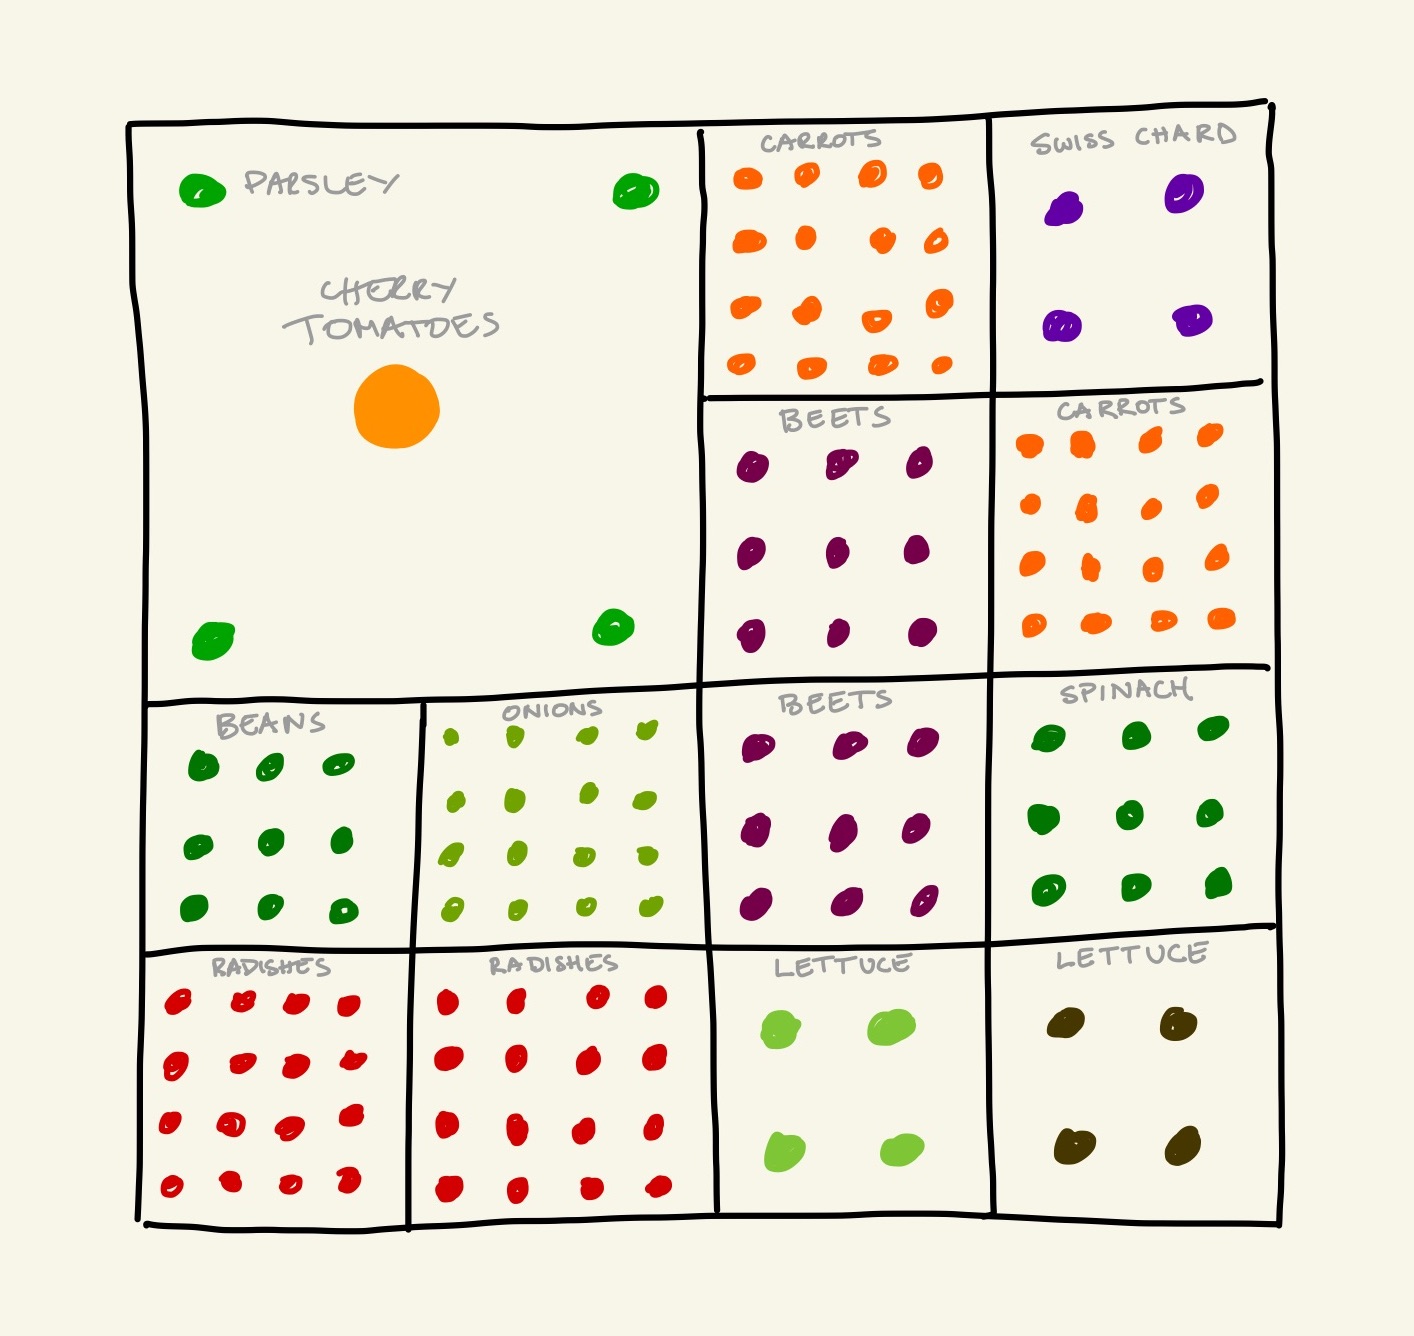 PARSLEY
CHERRY
TOMATOES
CARROTS
SWISS CHARD
BEETS
CARROTS
BEANS
ONIONS
BEETS
SPINACH
RADISHES
RADISHES
LETTUCE
LETTUCE